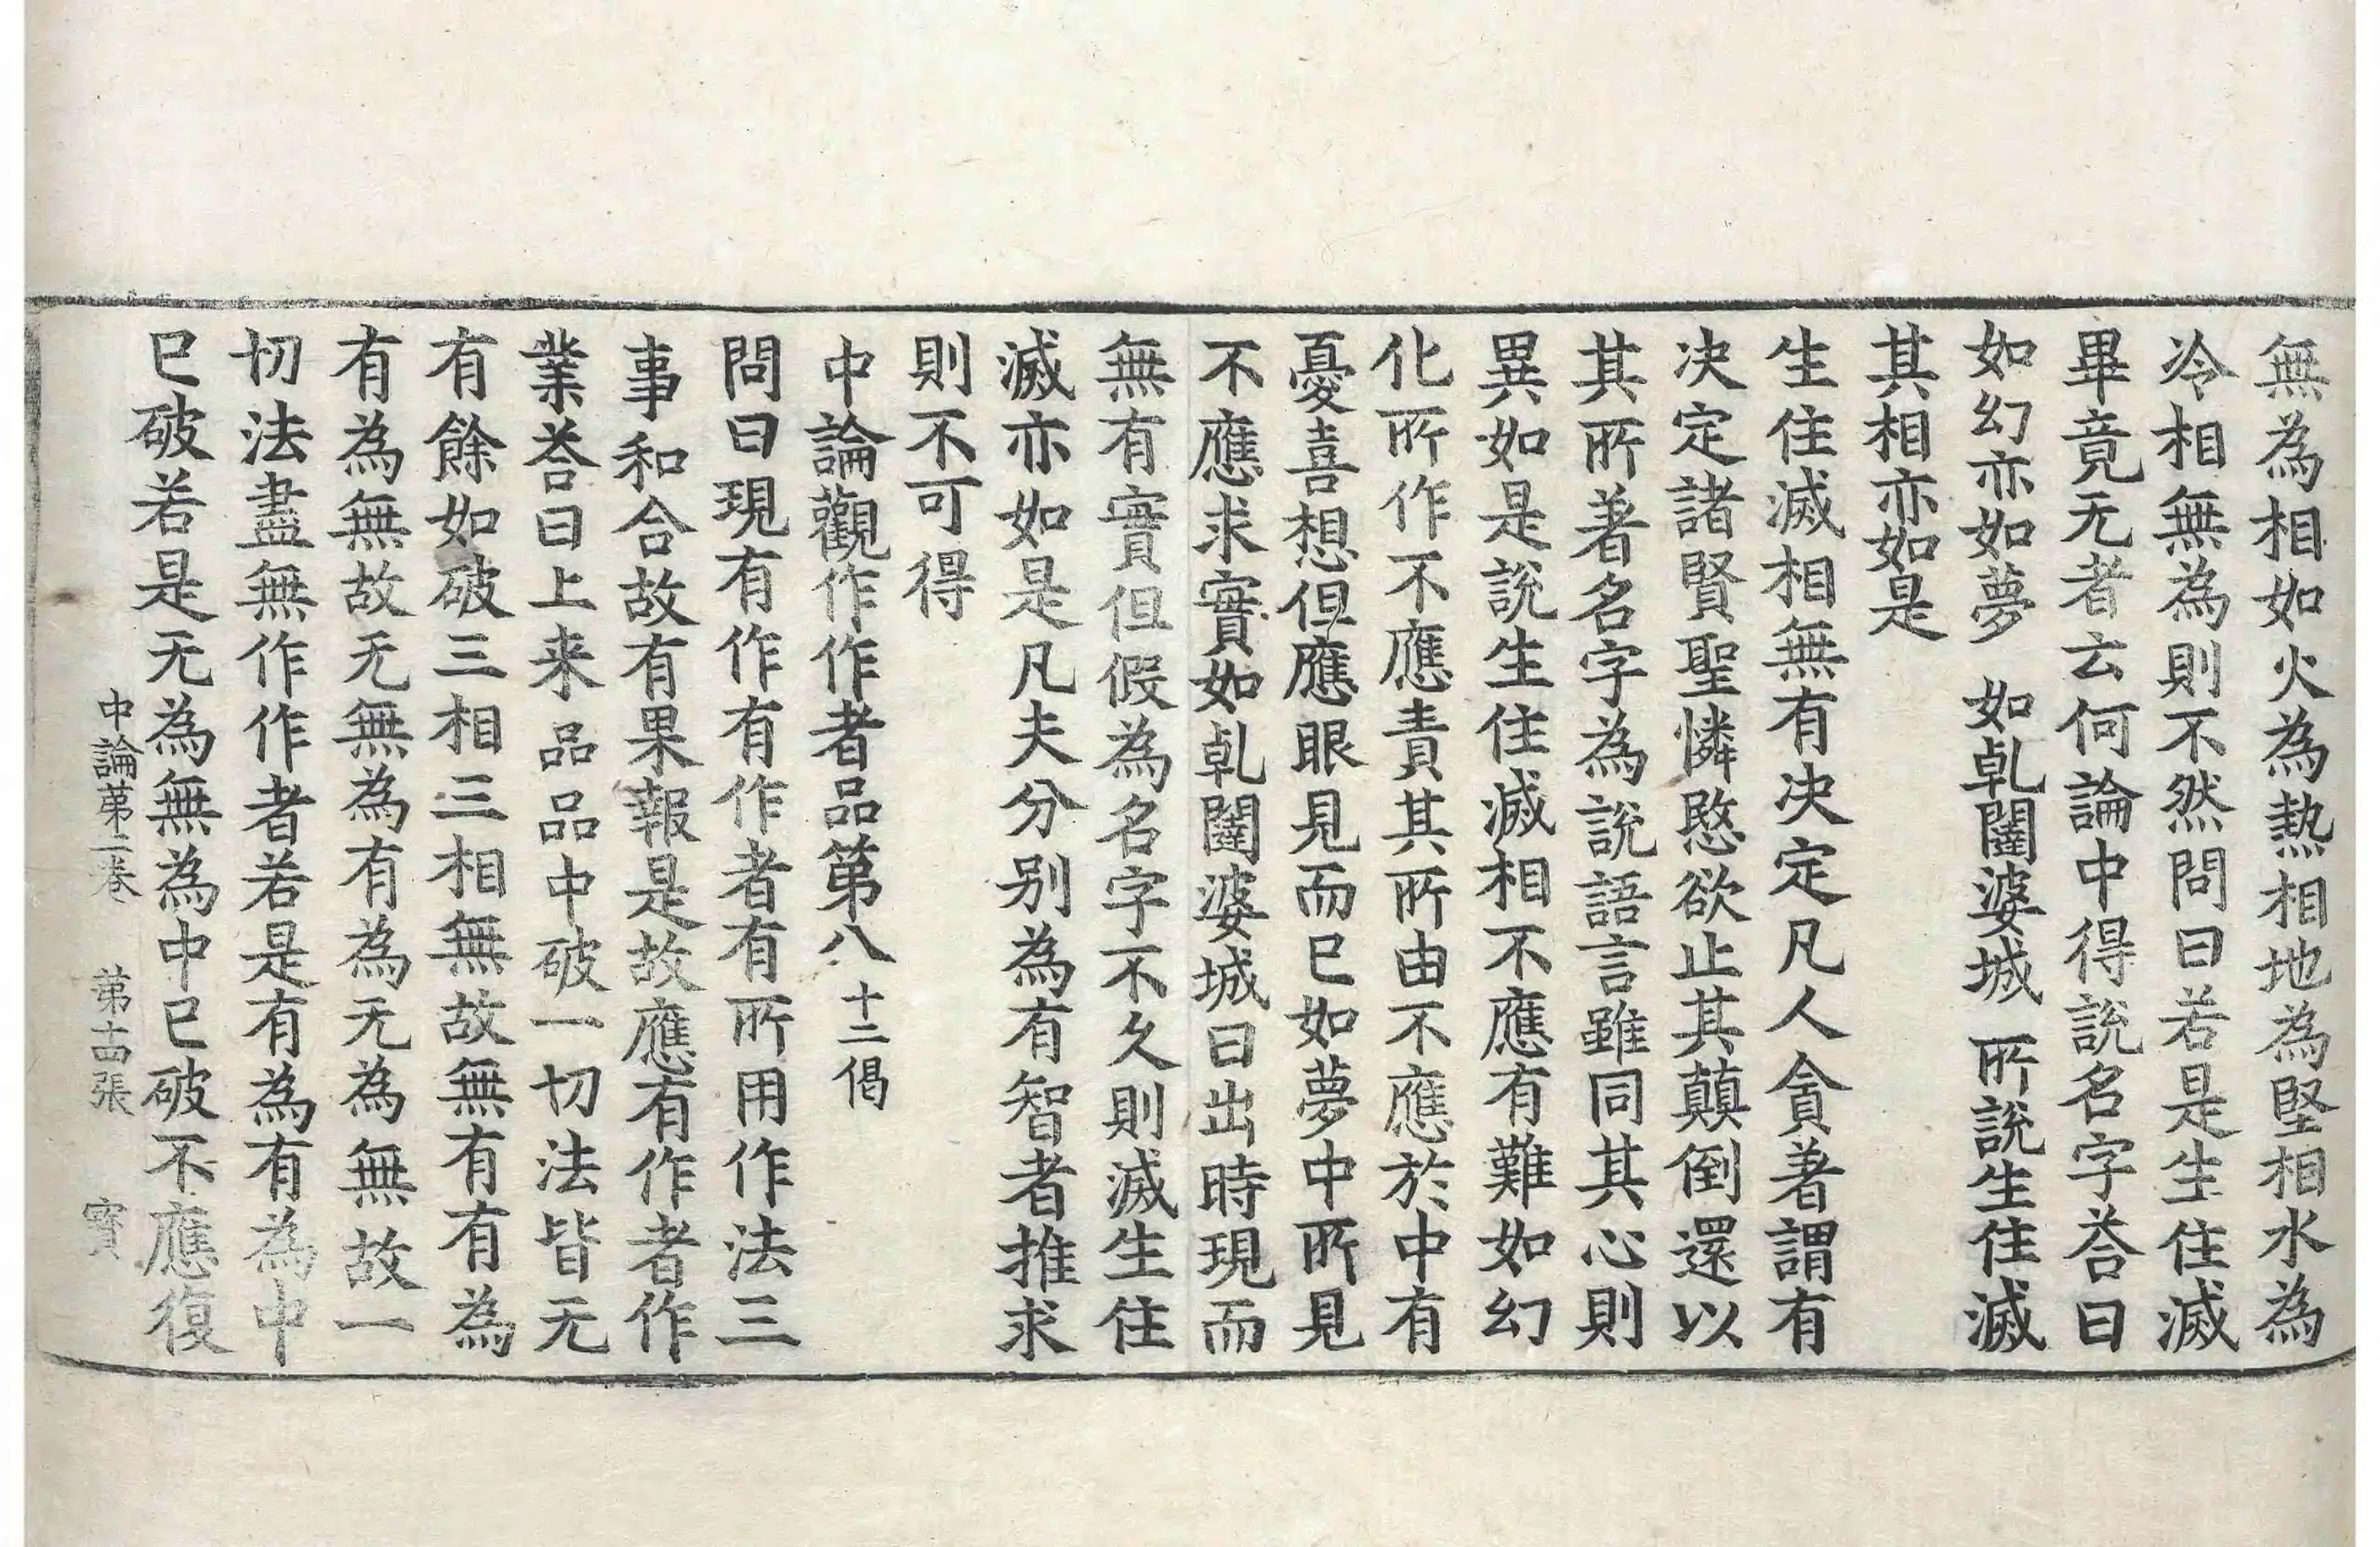 無為相如火為熱相地為堅相水為
冷相無為則不然問曰若是生住滅
畢竟无者云何論中得說名字荅曰
如幻亦如夢　如乹闥婆城　所說生住滅
其相亦如是
生住滅相無有决定凡人貪著謂有
决定諸賢聖憐愍欲止其顛倒還以
其所著名字為說語言雖同其心則
異如是說生住滅相不應有難如幻
化所作不應責其所由不應於中有
憂喜想但應眼見而已如夢中所見
不應求實如乹闥婆城日出時現而
無有實但假為名字不久則滅生住
滅亦如是凡夫分別為有智者推求
則不可得
中論觀作作者品第八 十二偈
問曰現有作有作者有所用作法三
事和合故有果報是故應有作者作
業荅曰上来品品中破一切法皆无
有餘如破三相三相無故無有有為
有為無故无無為有為无為無故一
切法盡無作作者若是有為有為中
已破若是无為無為中已破不應復
中論第二卷　第十四張　寶